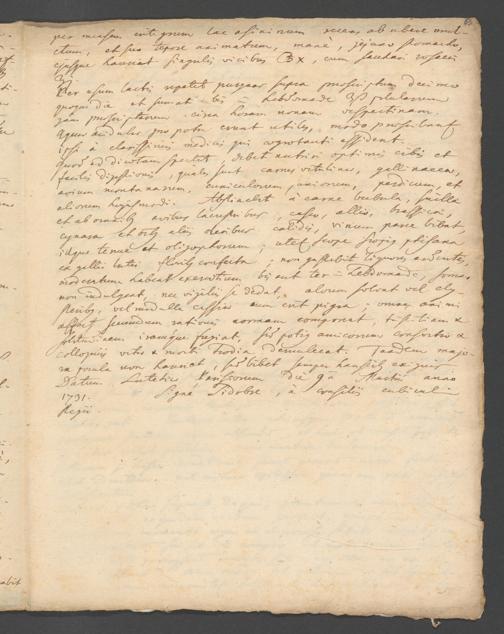 per mensem integrum lac asininum recens ab ubere mul-
ctum, et suo tepore animatum, mane, jejuno stomacho,
ejusque hauriat singulis vicibus ℥x, cum sacchari rosacei
℥j.
Per usum lactis repetet purgans supra praescriptum decimo
quoque die et sumat bis hebdomade pilularum
jam praescriptarum circa horam nonam vespertinam.
Aquae acidulae pro potu erunt utiles, modo proficiant
ipsi a clarissimis medicis qui aegrotanti assident.
quod ad diaetam spectat, debet nutriri optimis cibis et
facilis digestionis, quales sunt carnes vitulinae, gallinaceae,
avium montanarum, cuniculorum, juniorum, perdicum, et
aliorum hujusmodi. Abstineat a carne bubula, suilla
et ab omnibus avibus lacustribus, caseo, alliis, brassica,
cynara et aliis oleribus calidis, vinum parce bibat,
idque tenue et oligophorum; utetur saepe ptisana
floribus confecta; non gustabit liquores ardentes,
moderatum habeat exercitium bis aut ter hebdomade, somno
non indulgeat, nec vigiliis se dedat, alvum solvat vel
vel medulla cassiae cum erit pigra; omnes animi
affectus secundum rationis normam componat, tristitiam &
solitudinem, iramque fugiat, sed potius amicorum consortio &
colloquiis vitae & morbi taedia demulceat. Tandem majo-
ra pocula non hauriat, sed bibet semper
Datum Lutetiae Parisiorum die 9a Martii anno
1731. Signé Sidobre, a consiliis
Regis.